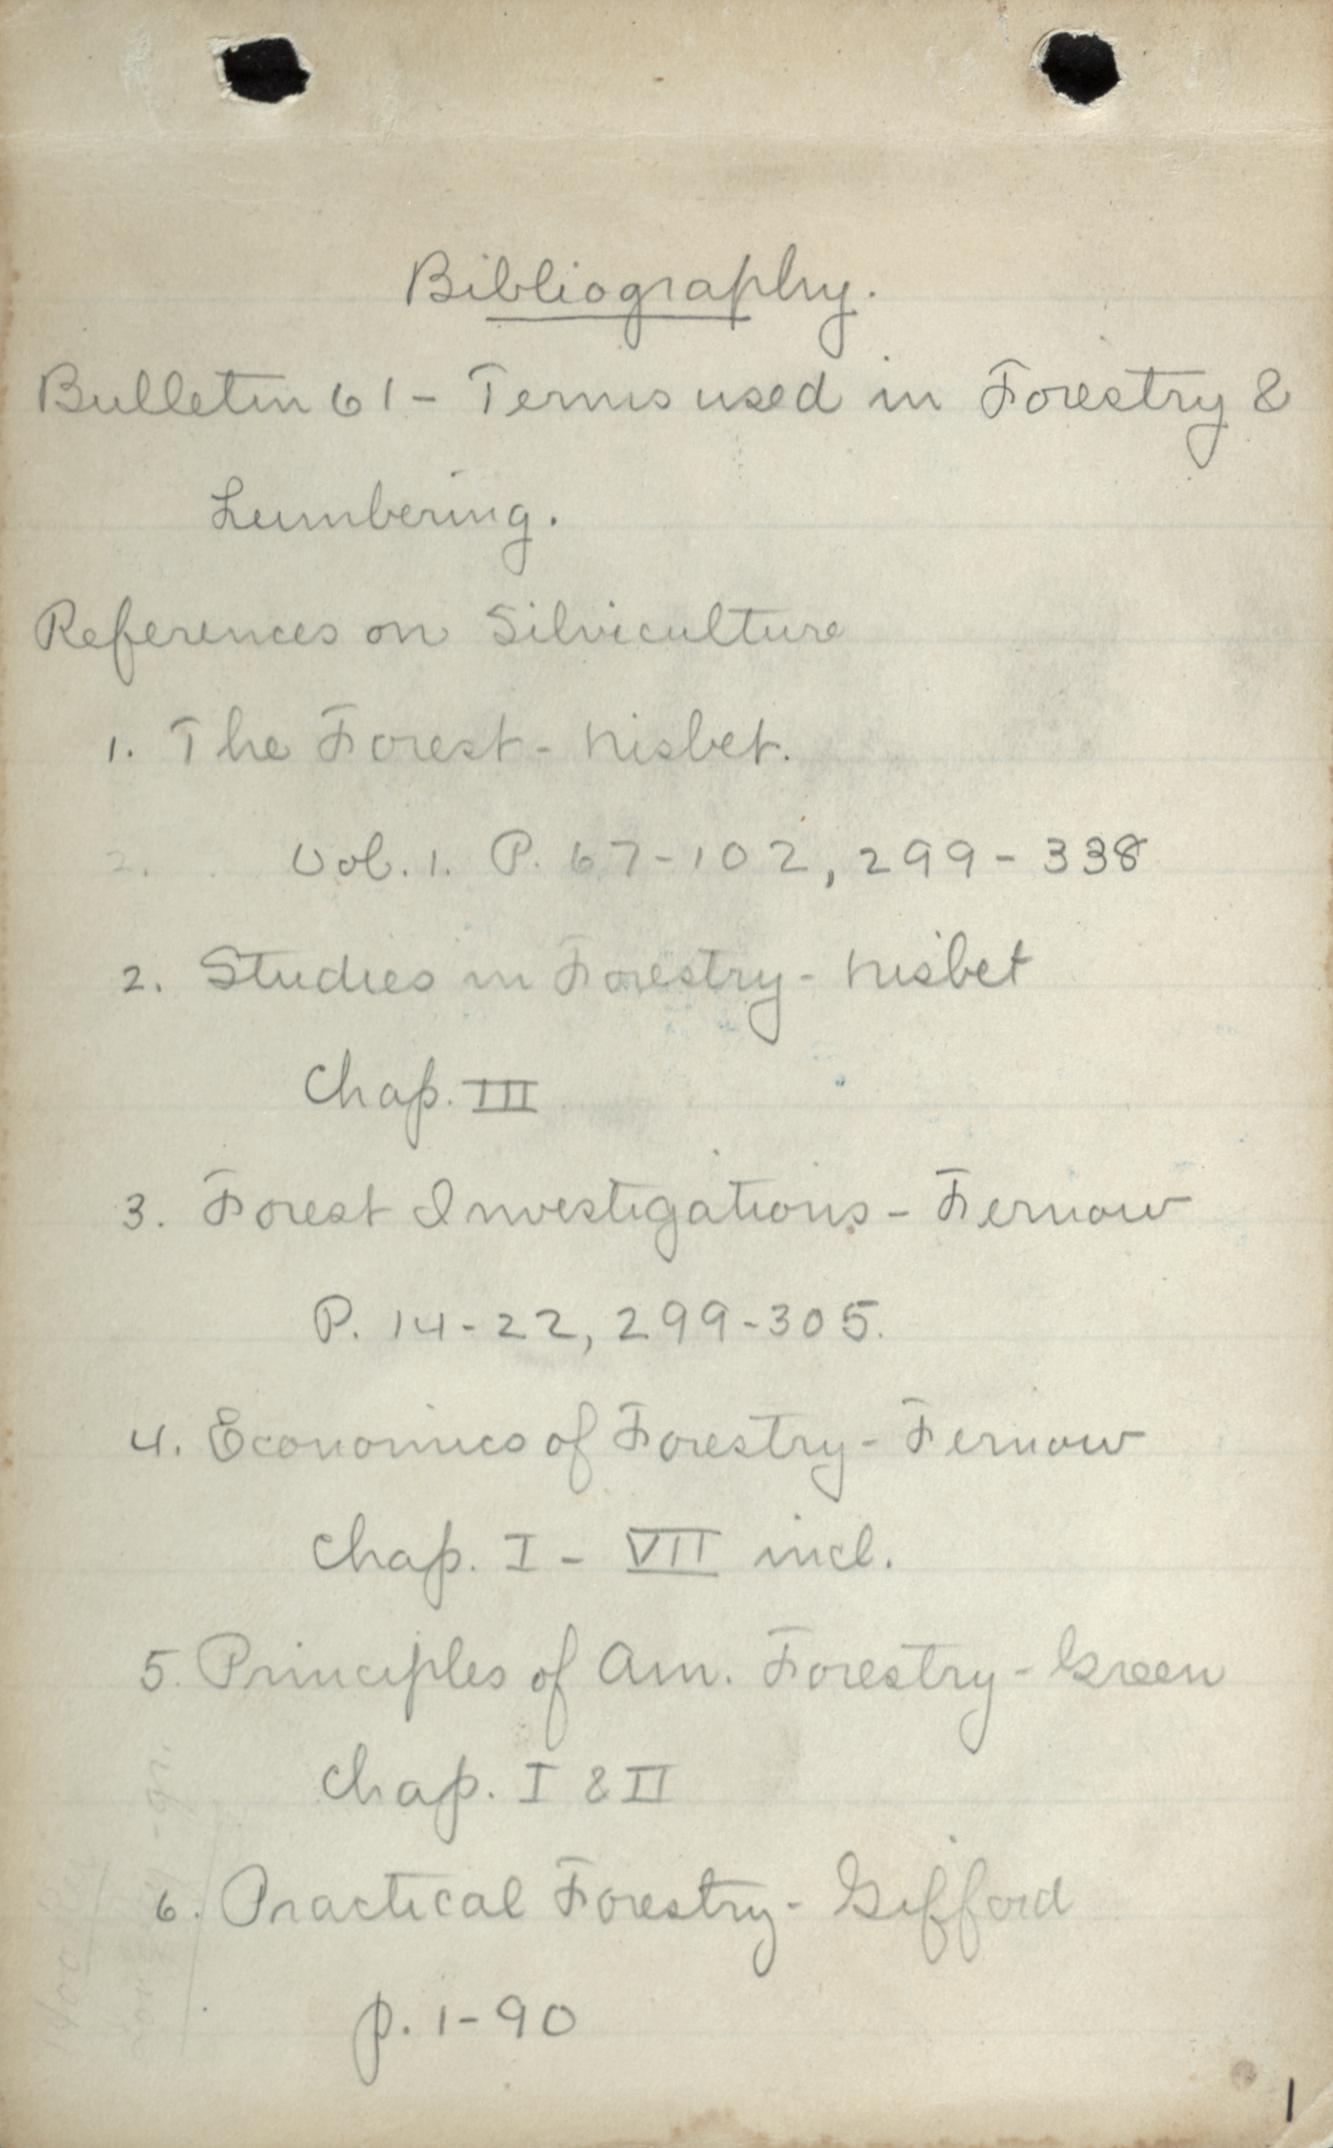 Bibliography.
Bulletin 61 - Terms used in Forestry &
Lumbering.
References on Silviculture
1. The Forest - Nisbet.
2. Vol. 1. P. 67-102, 299-338
2. Studies in Forestry - Nisbet
Chap. III
3. Forest Investigations - Fernow
P. 14-22, 299-305.
4. Economics of Forestry - Fernow
Chap. I - VII incl.
5. Principles of Am. Forestry - Green
Chap. I & II
6. Practical Forestry - Gifford
p. 1-90
1